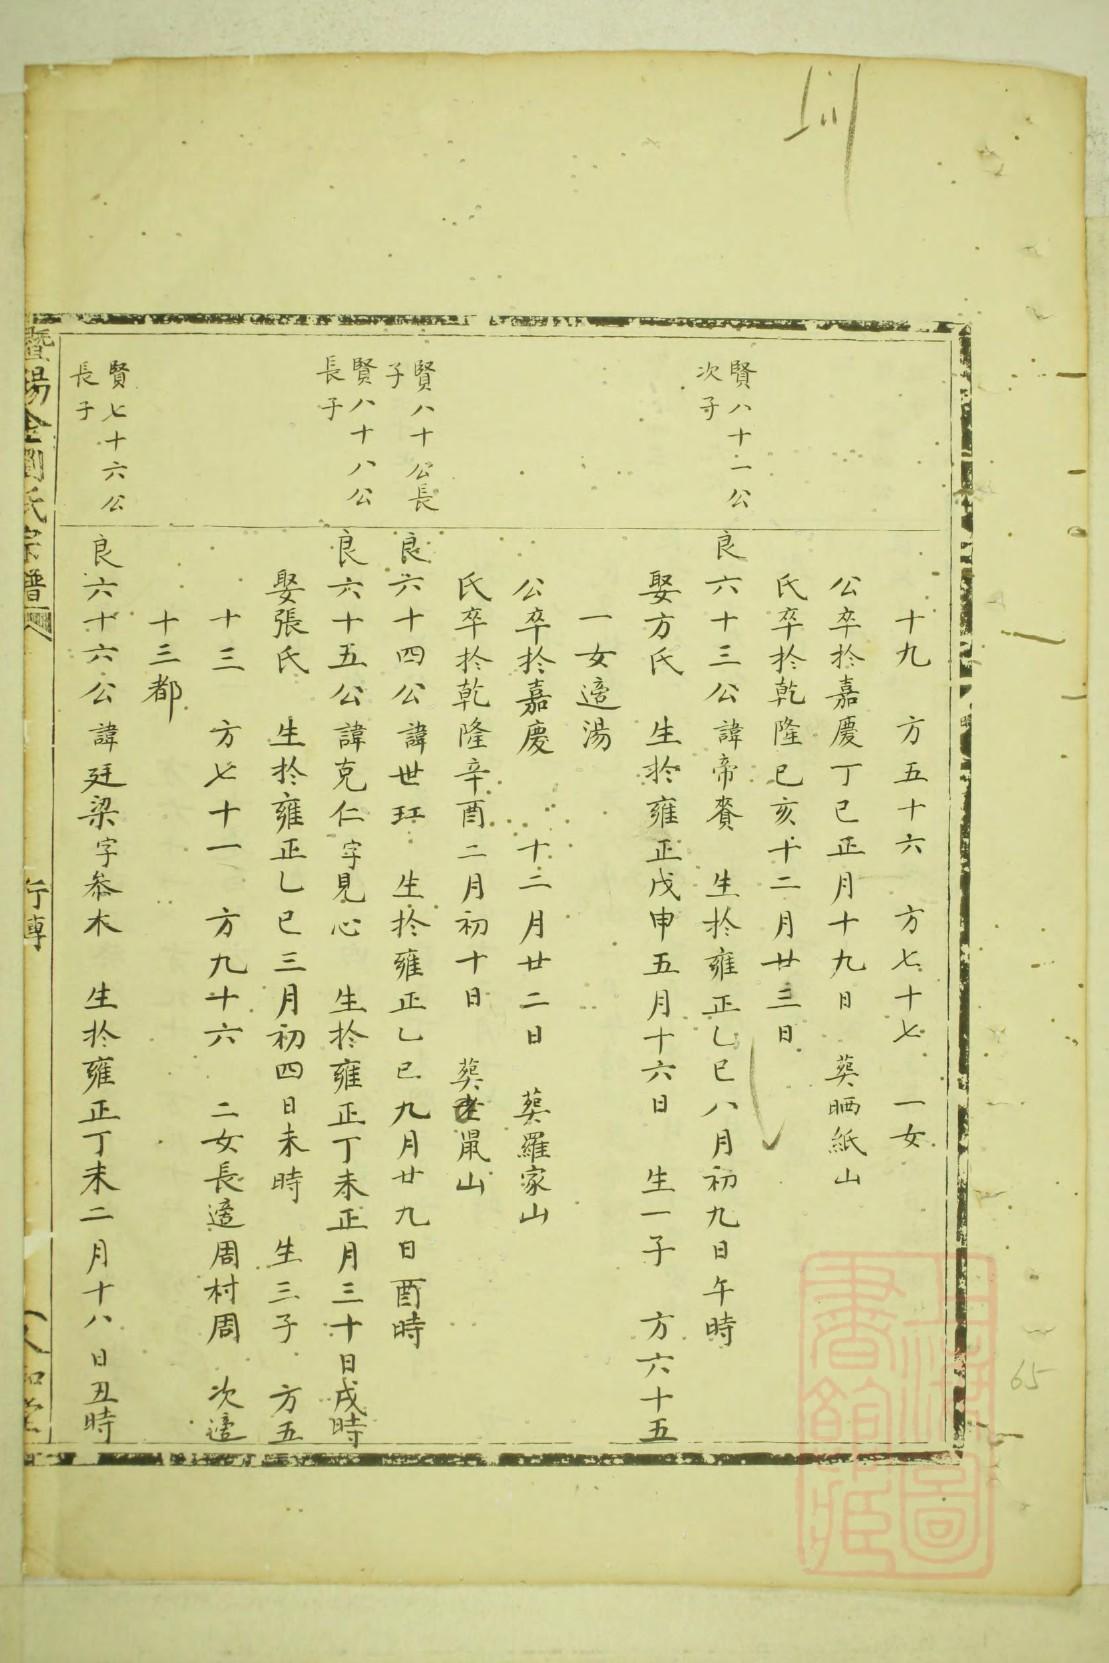 十九 方五十六 方七十七 一女
公卒於嘉慶丁巳正月十九日 葬晒紙山
氏卒於乾隆己亥十二月廿三日
賢八十一公
次子
良六十三公諱帝賚 生於雍正乙巳八月初九日午時
娶方氏 生於雍正戊申五月十六日 生一子 方六十五
一女適湯
公卒於嘉慶 十二月廿二日 葬羅家山
氏卒於乾隆辛酉二月初十日 葬 鼠山
賢八十公長
子
良六十四公諱世珏 生於雍正乙巳九月廿九日酉時
賢八十八公
長子
良六十五公諱克仁字見心 生於雍正丁未正月三十日戌時
娶張氏 生於雍正乙巳三月初四日未時 生三子 方五
十三 方七十一 方九十六 二女長適周村周 次適
十三都
賢七十六公
長子
良六十六公諱廷梁字叅木 生於雍正丁未二月十八日丑時
暨陽 劉氏宗譜
行傳
65
上海圖
書館藏